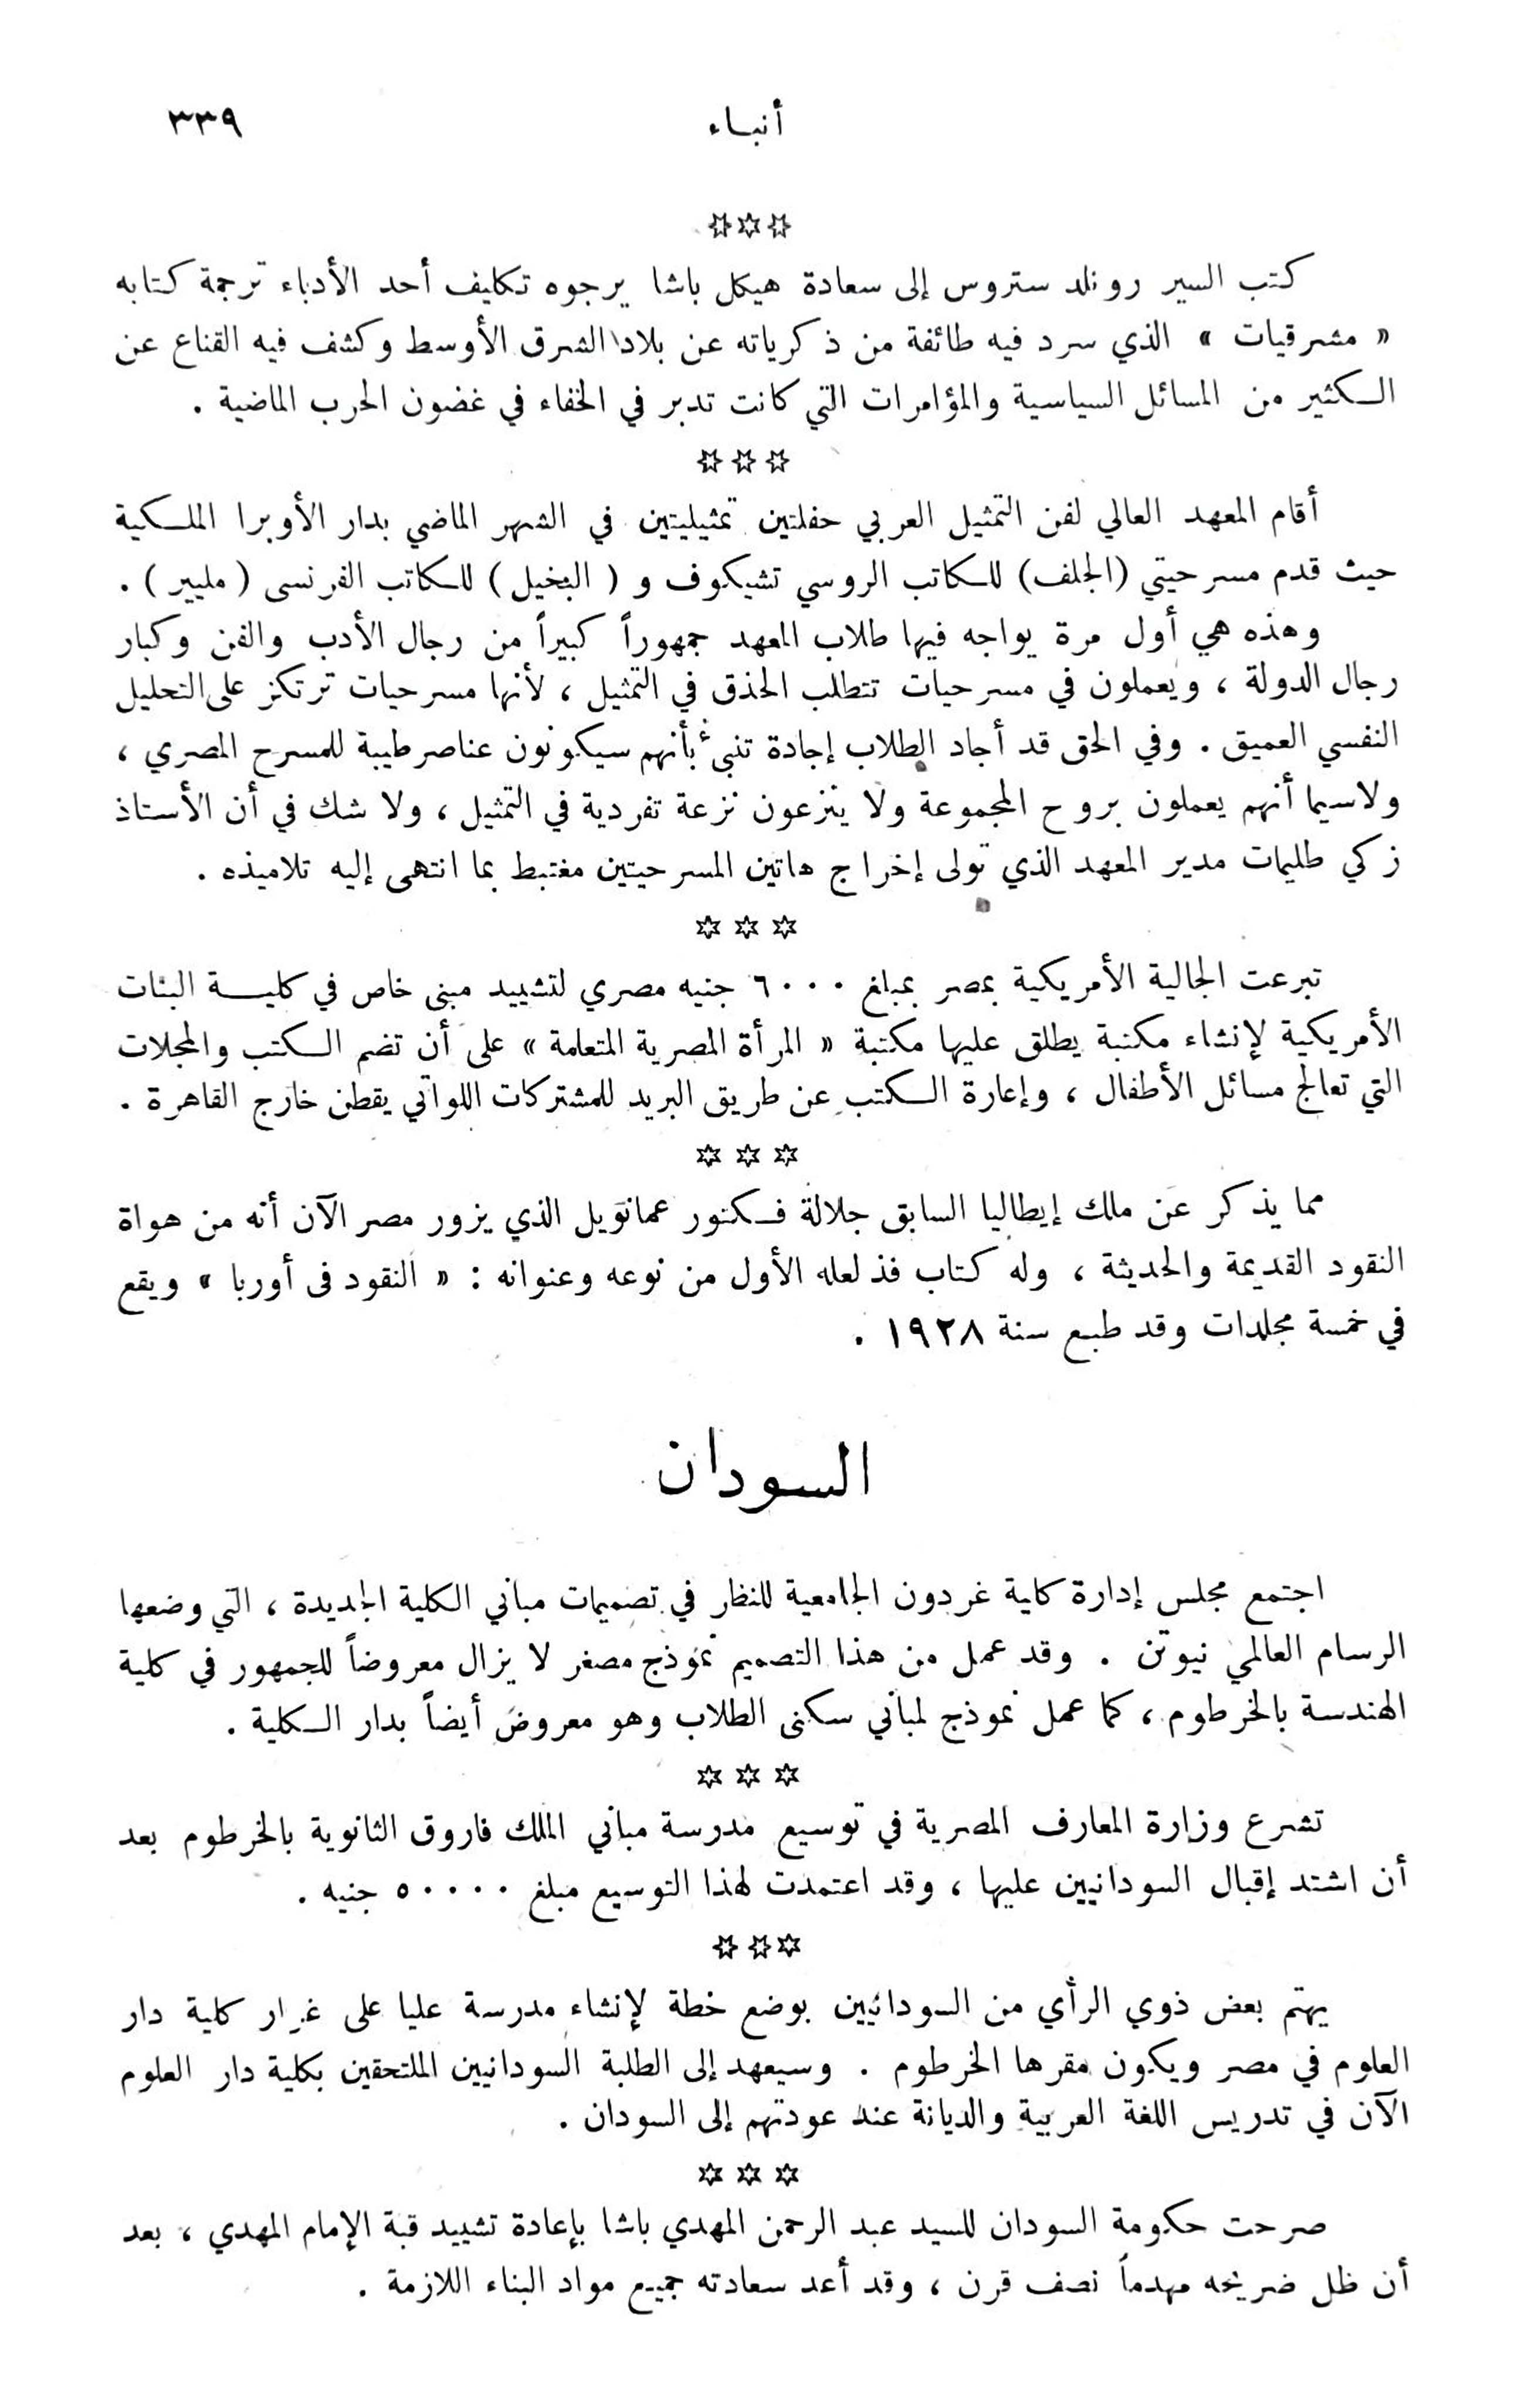 أنباء ٣٣٩
✡✡✡
كتب السير رونلد ستروس إلى سعادة هيكل باشا يرجوه تكليف أحد الأدباء ترجمة كتابه
« مشرقيات » الذي سرد فيه طائفة من ذكرياته عن بلاد الشرق الأوسط وكشف فيه القناع عن
الكثير من المسائل السياسية والمؤامرات التي كانت تدبر في الخفاء في غضون الحرب الماضية .
✡ ✡ ✡
أقام المعهد العالي لفن التمثيل العربي حفلتين تمثيليتين في الشهر الماضي بدار الأوبرا الملكية
حيث قدم مسرحيتي (الجلف) للكاتب الروسي تشيكوف و ( البخيل ) للكاتب الفرنسى ( مليير ) .
وهذه هي أول مرة يواجه فيها طلاب المعهد جمهوراً كبيراً من رجال الأدب والفن وكبار
رجال الدولة ، ويعملون في مسرحيات تتطلب الحذق في التمثيل ، لأنها مسرحيات ترتكز على التحليل
النفسي العميق . وفي الحق قد أجاد الطلاب إجادة تنبئ بأنهم سيكونون عناصر طيبة للمسرح المصري ،
ولاسيما أنهم يعملون بروح المجموعة ولا ينزعون نزعة تفردية في التمثيل ، ولا شك في أن الأستاذ
زكي طليمات مدير المعهد الذي تولى إخراج هاتين المسرحيتين مغتبط بما انتهى إليه تلاميذه .
✡ ✡ ✡
تبرعت الجالية الأمريكية بمصر بمبلغ ٦٠٠٠ جنيه مصري لتشييد مبنى خاص في كلية البنات
الأمريكية لإنشاء مكتبة يطلق عليها مكتبة « المرأة المصرية المتعلمة » على أن تضم الكتب والمجلات
التي تعالج مسائل الأطفال ، وإعارة الكتب عن طريق البريد للمشتركات اللواتي يقطن خارج القاهرة .
✡ ✡ ✡
مما يذكر عن ملك إيطاليا السابق جلالة فكتور عمانويل الذي يزور مصر الآن أنه من هواة
النقود القديمة والحديثة ، وله كتاب فذ لعله الأول من نوعه وعنوانه : « النقود فى أوربا » ويقع
في خمسة مجلدات وقد طبع سنة ١٩٢٨ .
السودان
اجتمع مجلس إدارة كلية غردون الجامعية للنظار في تصميمات مباني الكلية الجديدة ، التي وضعها
الرسام العالمي نيوتن . وقد عمل من هذا التصميم نموذج مصغر لا يزال معروضاً للجمهور في كلية
الهندسة بالخرطوم ، كما عمل نموذج لمباني سكنى الطلاب وهو معروض أيضاً بدار الكلية .
✡ ✡ ✡
تشرع وزارة المعارف المصرية في توسيع مدرسة مباني الملك فاروق الثانوية بالخرطوم بعد
أن اشتد إقبال السودانيين عليها ، وقد اعتمدت لهذا التوسيع مبلغ ٥٠٠٠٠ جنيه .
✡✡✡
يهتم بعض ذوي الرأي من السودانيين بوضع خطة لإنشاء مدرسة عليا على غرار كلية دار
العلوم في مصر ويكون مقرها الخرطوم . وسيعهد إلى الطلبة السودانيين الملتحقين بكلية دار العلوم
الآن في تدريس اللغة العربية والديانة عند عودتهم إلى السودان .
✡ ✡ ✡
صرحت حكومة السودان للسيد عبد الرحمن المهدي باشا بإعادة تشييد قبة الإمام المهدي ، بعد
أن ظل ضريحه مهدماً نصف قرن ، وقد أعد سعادته جميع مواد البناء اللازمة .